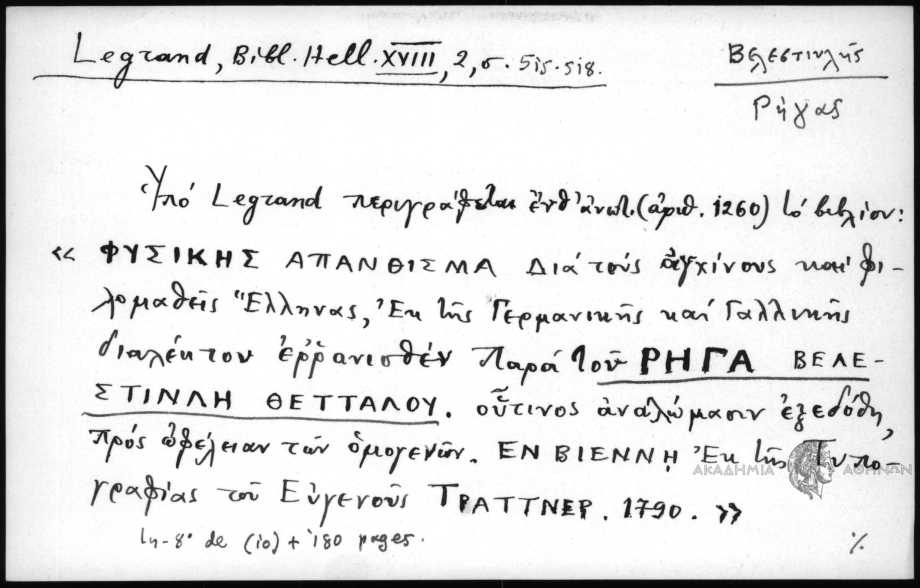 Legrand, Bibl. Hell. XVIII, 2, σ. 515-518.
Βελεστινλῆς
Ρήγας
Ὑπό Legrand περιγράφεται ἐνθ' ἀνωτ. (ἀριθ. 1260) τό βιβλίον:
« ΦΥΣΙΚΗΣ ΑΠΑΝΘΙΣΜΑ Διά τούς ἀγχίνους καί φι-
λομαθεῖς Ἕλληνας, Ἐκ τῆς Γερμανικῆς καί Γαλλικῆς
διαλέκτου ἐῤῥανισθέν Παρά τοῦ ΡΗΓΑ ΒΕΛΕ-
ΣΤΙΝΛΗ ΘΕΤΤΑΛΟΥ. οὗτινος ἀναλώμασιν ἐξεδόθη,
πρός ὠφέλειαν τῶν ὁμογενῶν. ΕΝ ΒΙΕΝΝῌ Ἐκ τῆς Τυπο-
γραφίας τοῦ Εὐγενοῦς ΤΡΑΤΤΝΕΡ. 1790. »
In-8° de (10) + 180 pages.
./.
ΑΚΑΔΗΜΙΑ ΑΘΗΝΩΝ